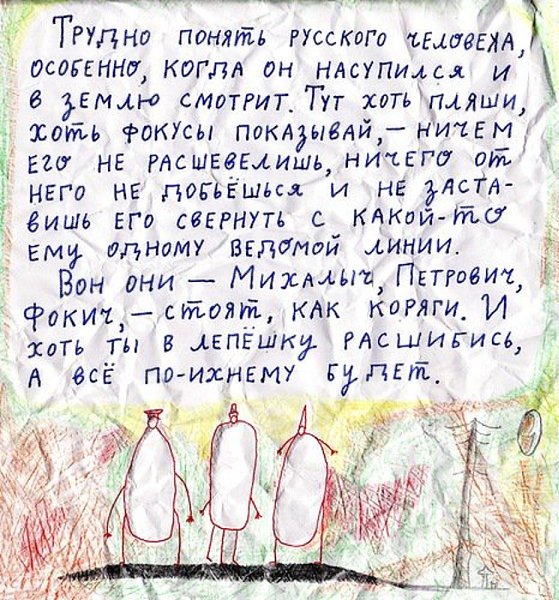 Трудно понять русского человека,
особенно, когда он насупился и
в землю смотрит. Тут хоть пляши,
хоть фокусы показывай, – ничем
его не расшевелишь, ничего от
него не добьёшься и не заста-
вишь его свернуть с какой-то
ему одному ведомой линии.
Вон они – Михалыч, Петрович,
Фокич, – стоят, как коряги. И
хоть ты в лепёшку расшибись,
а всё по-ихнему будет.